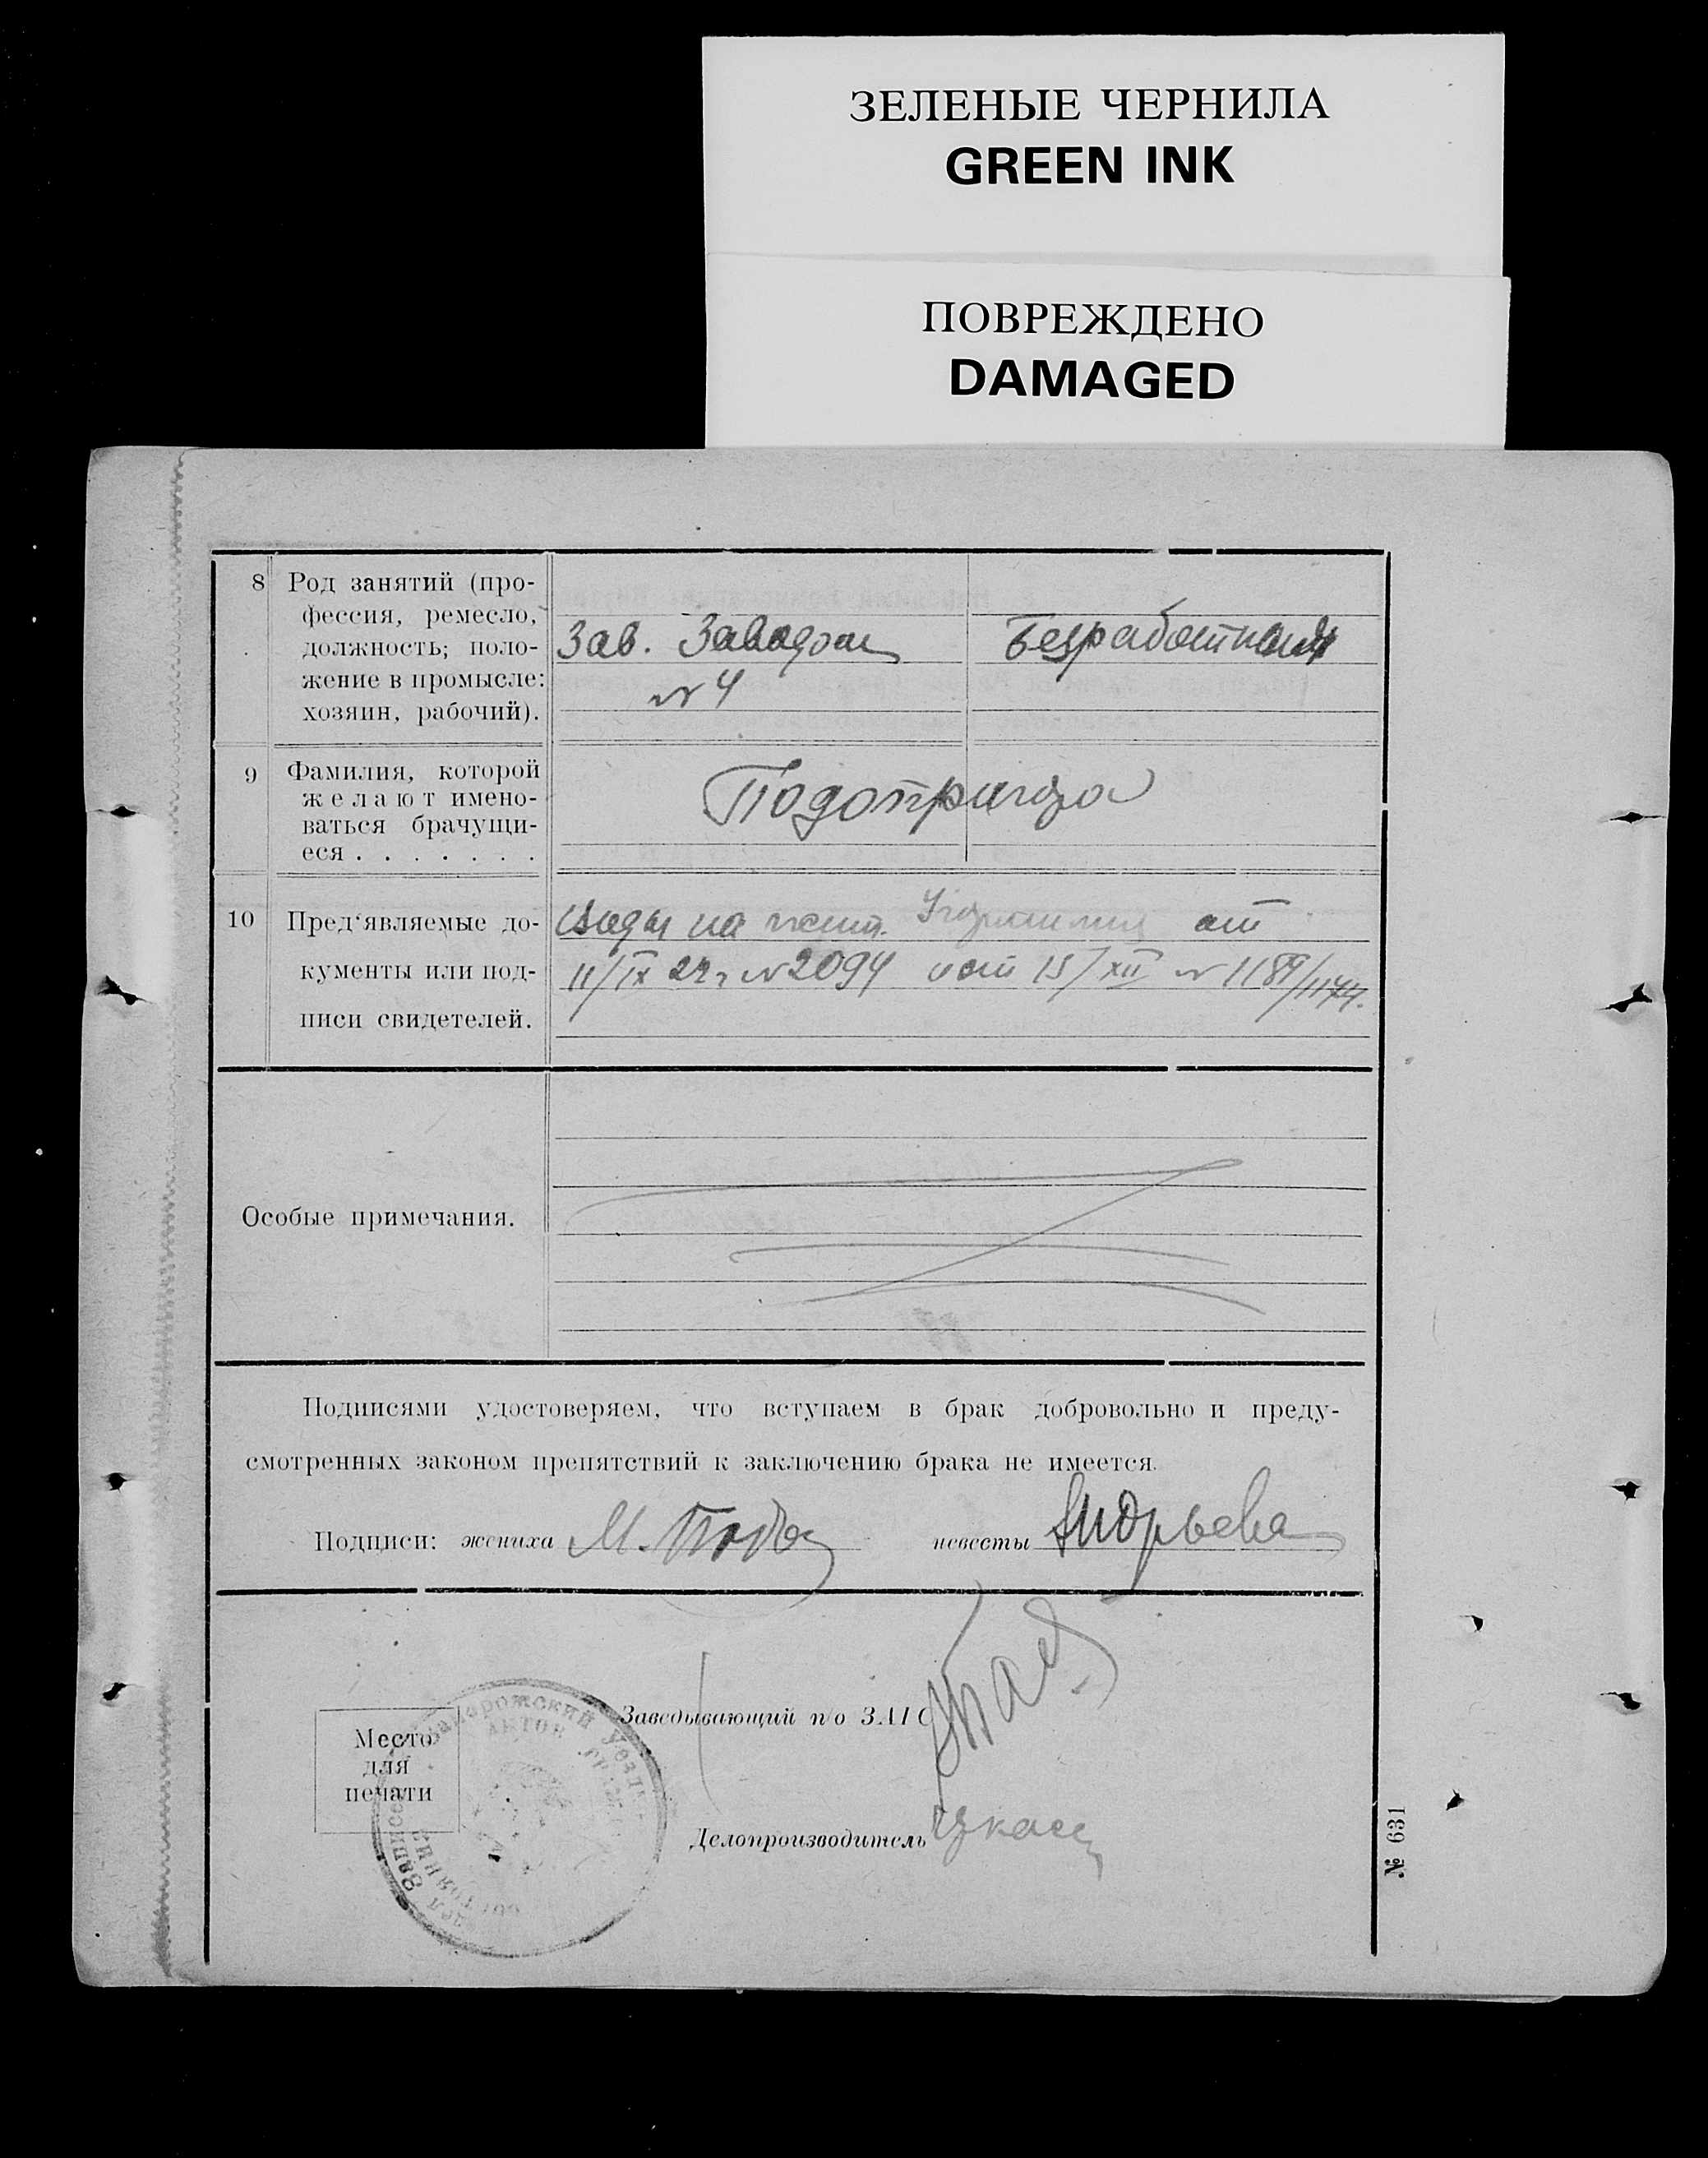 ЗЕЛЕНЫЕ ЧЕРНИЛА
GREEN INK
ПОВРЕЖДЕНО
DAMAGED
8 Род занятий (про-
фессия, ремесло,
должность; поло-
жение в промысле:
хозяин, рабочий).
Зав. Заводом
№ 4
Безработная
9 Фамилия, которой
желают имено-
ваться брачущи-
еся . . . . . . .
Подопригора
10 Пред'являемые до-
кументы или под-
писи свидетелей.
на жит. от
11/IX 22 г № 2094 и от 15/XII № 1189/1174.
Особые примечания.
Подписями удостоверяем, что вступаем в брак добровольно и преду-
смотренных законом препятствий к заключению брака не имеется.
Подписи: жениха М. невесты Андрьева
Заведывающий п/о ЗАГС
Место
для
печати
Запорожский уезд
Записей
Делопроизводитель
№ 631